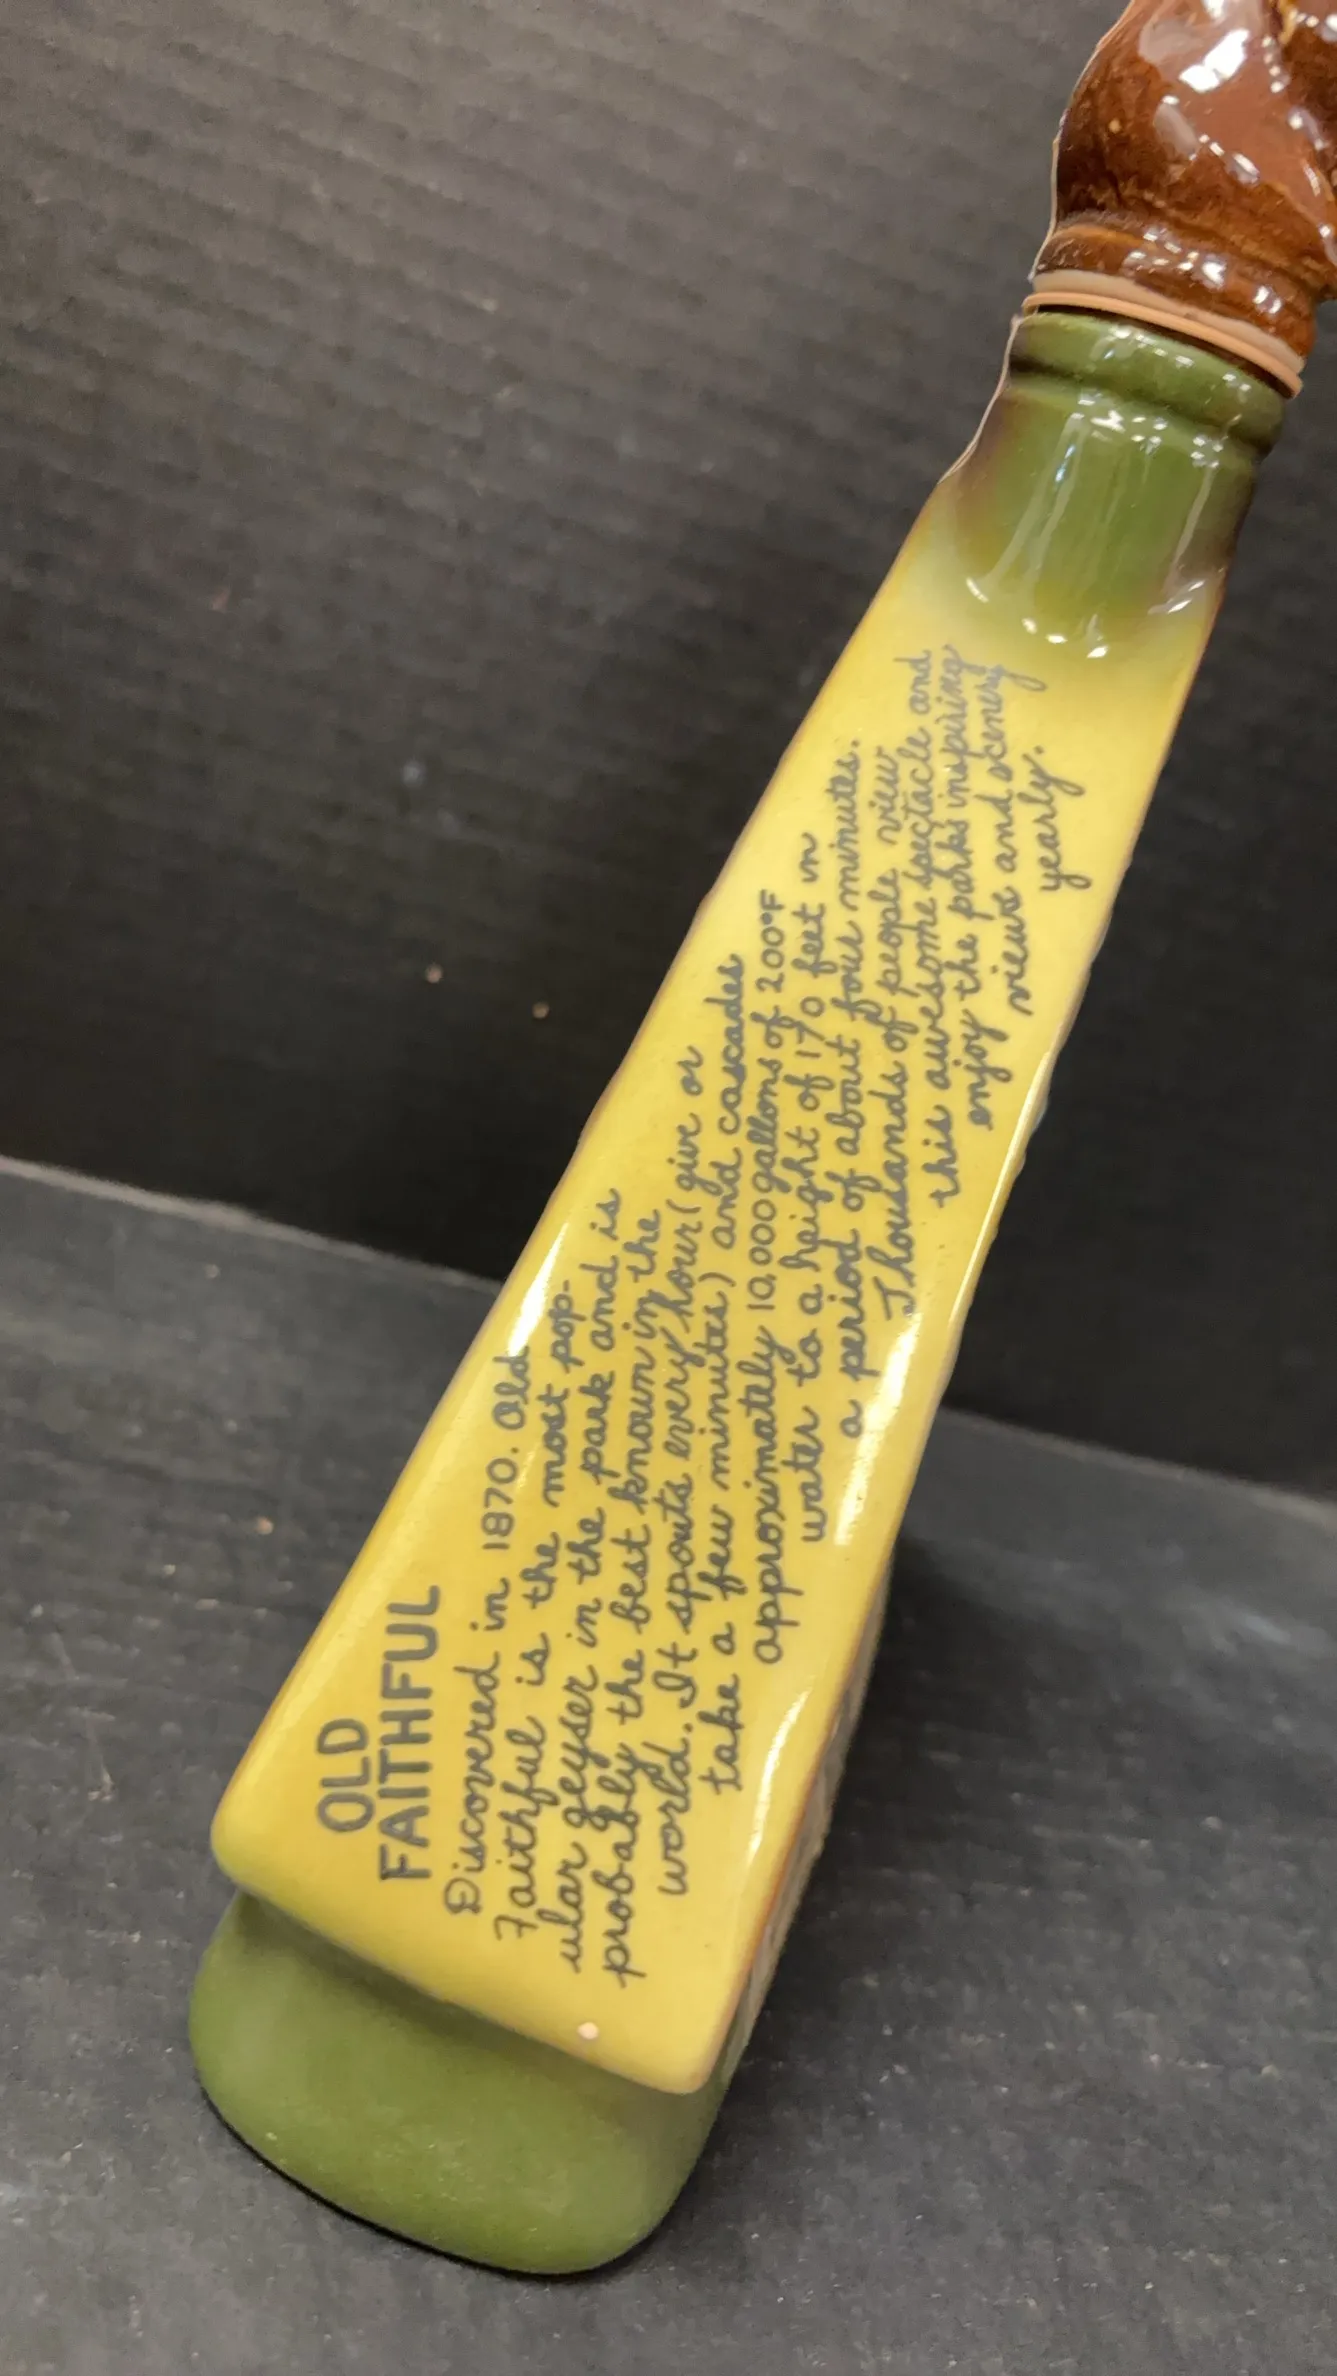 OLD
FAITHFUL
Discovered in 1870. Old
Faithful is the most pop-
ular geyser in the park and is
probably the best known in the
world. It spouts every hour (give or
take a few minutes) and cascades
approximately 10,000 gallons of 200°F
water to a height of 170 feet in
a period of about four minutes.
Thousands of people view
this awesome spectacle and
enjoy the parks inspiring
views and scenery
yearly.